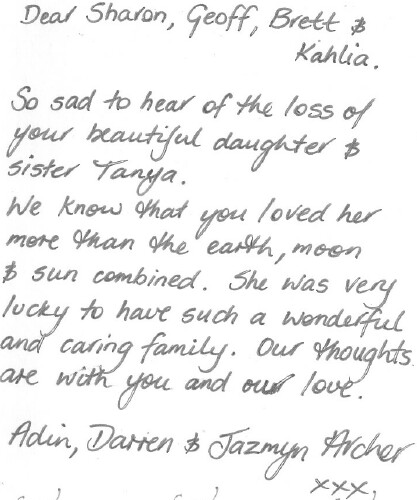 Dear Sharon, Geoff, Brett &
Kahlia.
So sad to hear of the loss of
your beautiful daughter &
sister Tanya.
We know that you loved her
more than the earth, moon
& sun combined. She was very
lucky to have such a wonderful
and caring family. Our thoughts
are with you and our love.
Adin, Darren & Jazmyn Archer
xxx.